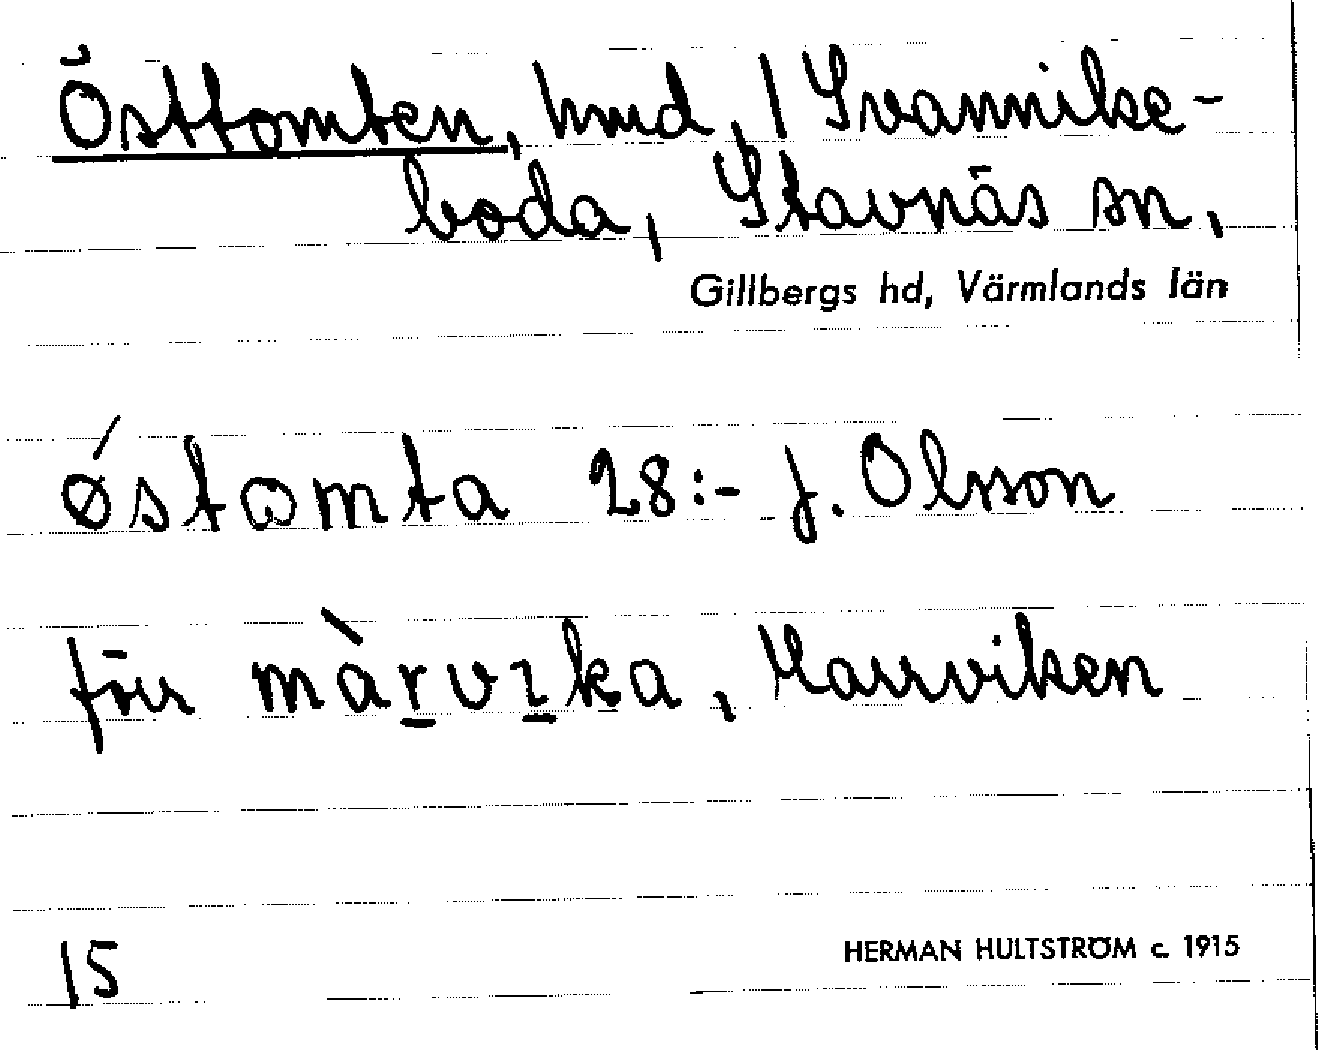 Östtomten, hmd, 1 Svannike-
boda, Stavnäs sn,
Gillbergs hd, Värmlands län
østomta 28:- J. Olsson
förr màrvıka, Marrviken
15
HERMAN HULTSTRÖM c. 1915